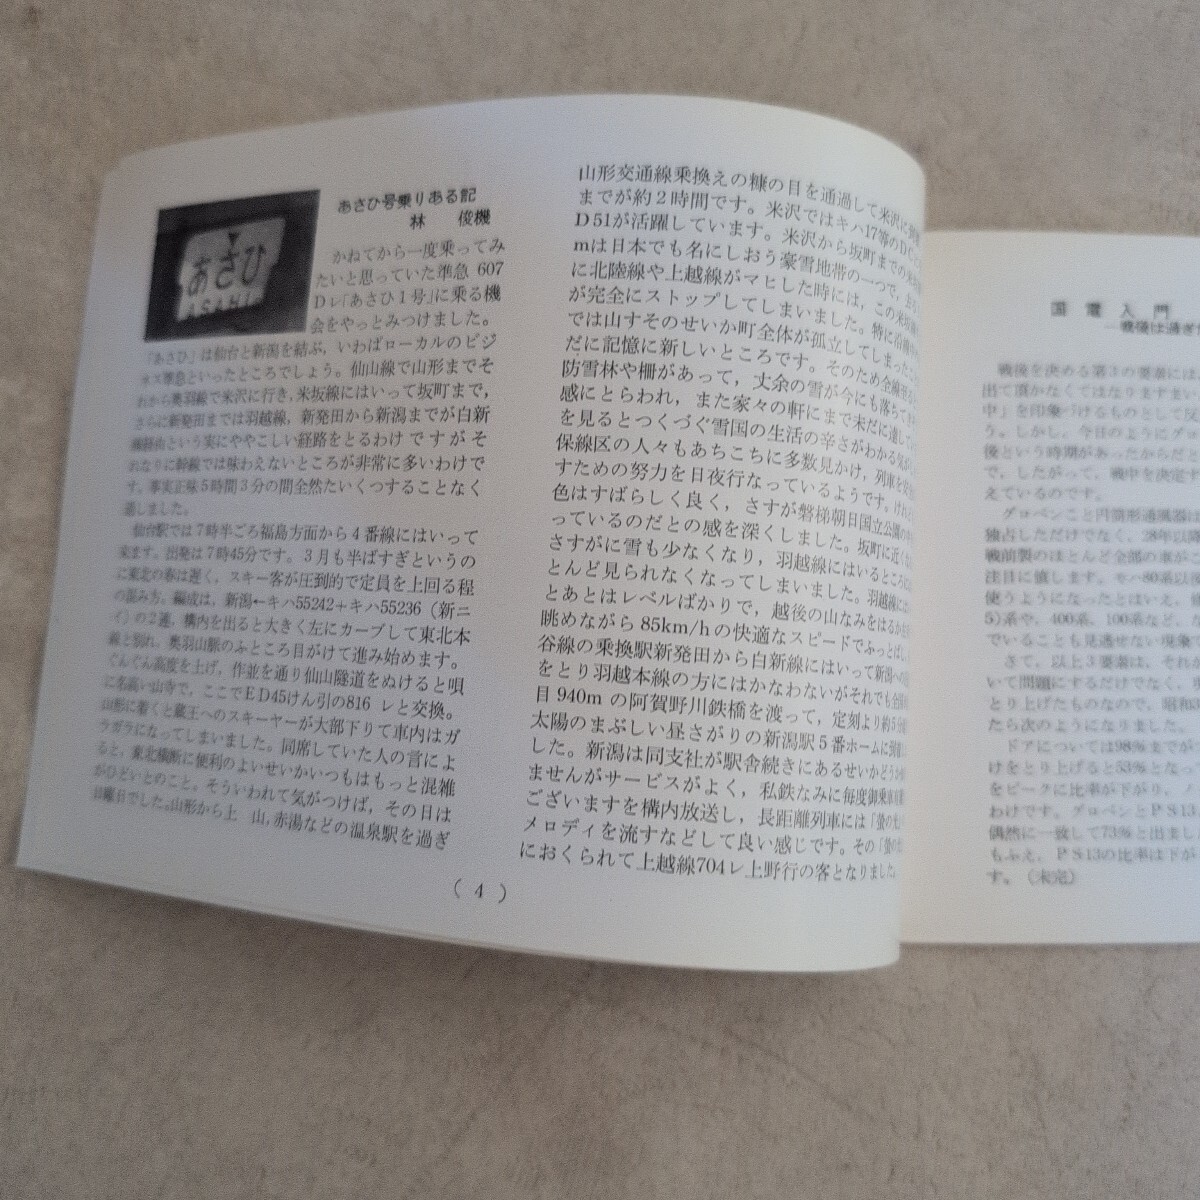 あさひ
ASAHI
あさひ号乗りある記
林 俊機
かねてから一度乗ってみ
たいと思っていた準急 607
Dレ「あさひ1号」に乗る機
会をやっとみつけました。
「あさひ」は仙台と新潟を結ぶ，いわばローカルのビジ
ネス準急といったところでしょう。仙山線で山形までそ
れから奥羽線で米沢に行き，米坂線にはいって坂町まで，
さらに新発田までは羽越線，新発田から新潟までが白新
線経由という実にややこしい経路をとるわけですがそ
れなりに幹線では味わえないところが非常に多いわけで
す。事実正味5時間3分の間全然たいくつすることなく
過しました。
仙台駅では7時半ごろ福島方面から4番線にはいって
来ます。出発は7時45分です。3月も半ばすぎというの
に東北の春は遅く，スキー客が圧倒的で定員を上回る程
の混み方。編成は，新潟←キハ55242＋キハ55236（新ニ
イ）の2連，構内を出ると大きく左にカーブして東北本
線と別れ，奥羽山脈のふところ目がけて進み始めます。
ぐんぐん高度を上げ，作並を通り仙山隧道をぬけると唄
に名高い山寺で，ここでED45けん引の816レと交換。
山形に着くと蔵王へのスキーヤーが大部下りて車内はガ
ラガラになってしまいました。同席していた人の言によ
ると，東北横断に便利のよいせいかいつもはもっと混雑
がひどいとのこと。そういわれて気がつけば，その日は
日曜日でした。山形から上 山，赤湯などの温泉駅を過ぎ
山形交通線乗換えの糠の目を通過して米沢に
までが約2時間です。米沢ではキハ17等のDC
D51が活躍しています。米沢から坂町までの
mは日本でも名にしおう豪雪地帯の一つで，
に北陸線や上越線がマヒした時には，この米坂線
が完全にストップしてしまいました。特に
では山すそのせいか町全体が孤立してしまった
だに記憶に新しいところです。そのため全線
防雪林や柵があって，丈余の雪が今にも落ちて
感にとらわれ，また家々の軒にまで未だに達して
を見るとつくづく雪国の生活の辛さがわかる気が
保線区の人々もあちこちに多数見かけ，列車を安全
すための努力を日夜行なっているようです。けれど
色はすばらしく良く，さすが磐梯朝日国立公園の
っているのだとの感を深くしました。坂町に近く
さすがに雪も少なくなり，羽越線にはいるところには
とんど見られなくなってしまいました。羽越線には
とあとはレベルばかりで，越後の山なみをはるか
眺めながら85km/hの快適なスピードでふっとばし
谷線の乗換駅新発田から白新線にはいって新潟への
をとり羽越本線の方にはかなわないがそれでも全
目 940m の阿賀野川鉄橋を渡って，定刻より約5分
太陽のまぶしい昼さがりの新潟駅5番ホームに到着
した。新潟は同支社が駅舎続きにあるせいかどうか
ませんがサービスがよく，私鉄なみに毎度御乗車
ございますを構内放送し，長距離列車には「蛍の光」
メロディを流すなどして良い感じです。その「蛍の光」
におくられて上越線704レ上野行の客となりました。
（ 4 ）
国電入門
―戦後は過ぎ
戦後を決める第3の要素には，
出て頂かなくてはなりますまい
中」を印象づけるものとして
う。しかし，今日のようにグロ
後という時期があったからだと
で，したがって，戦中を決定す
えているのです。
グロベンこと円筒形通風器は
独占しただけでなく，28年以降
戦前製のほとんど全部の車がこ
注目に値します。モハ80系以後
使うようになったとはいえ，
5)系や，400系，100系など，な
でいることも見逃せない現象
さて，以上3要素は，それが
いて問題にするだけでなく，
とり上げたものなので，昭和3
たら次のようになりました。
ドアについては98％までが
けをとり上げると53％となって
をピークに比率が下がり，ノ
わけです。グロベンとPS13
偶然に一致して73％と出まし
もふえ，PS13の比率は下が
す。（未完）